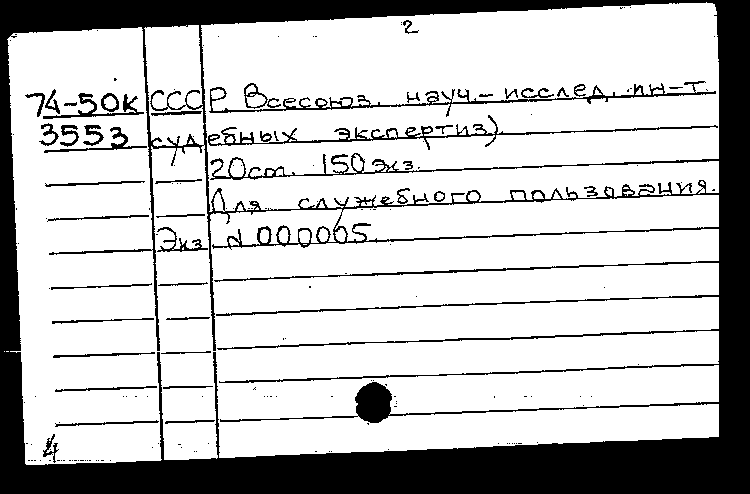 2
74-50к СССР. Всесоюз. науч.-исслед. ин-т
3553 судебных экспертиз)
20 ст. 150 экз.
Для служебного пользования.
Экз N 000005.
4